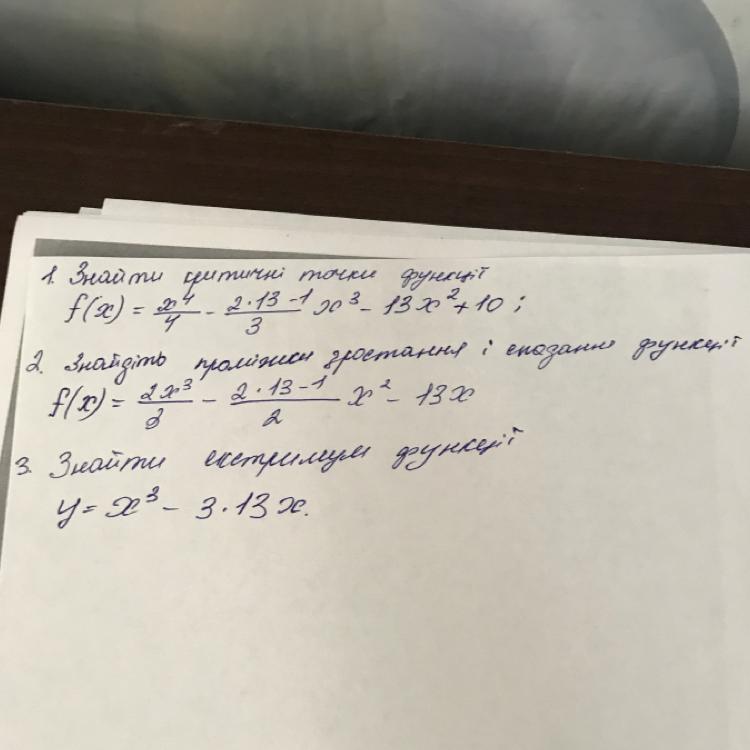 1. Знайти критичні точки функції
f(x) = x⁴/4 - (2·13-1)/3 x³ - 13x² + 10 ;
2. Знайдіть проміжки зростання і спадання функції
f(x) = 2x³/3 - (2·13-1)/2 x² - 13x
3. Знайти екстримум функції
y = x³ - 3·13x.